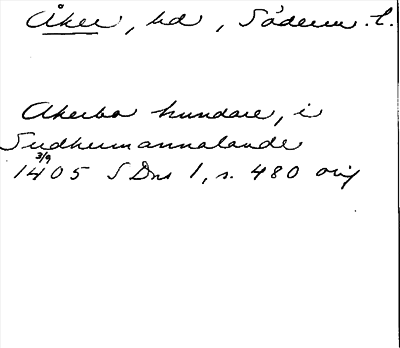 Åker, hd, Söderm. l.
Akerbo hundare, i
Sudhermannalande
3/9
1405 SDns 1, s. 480 orig